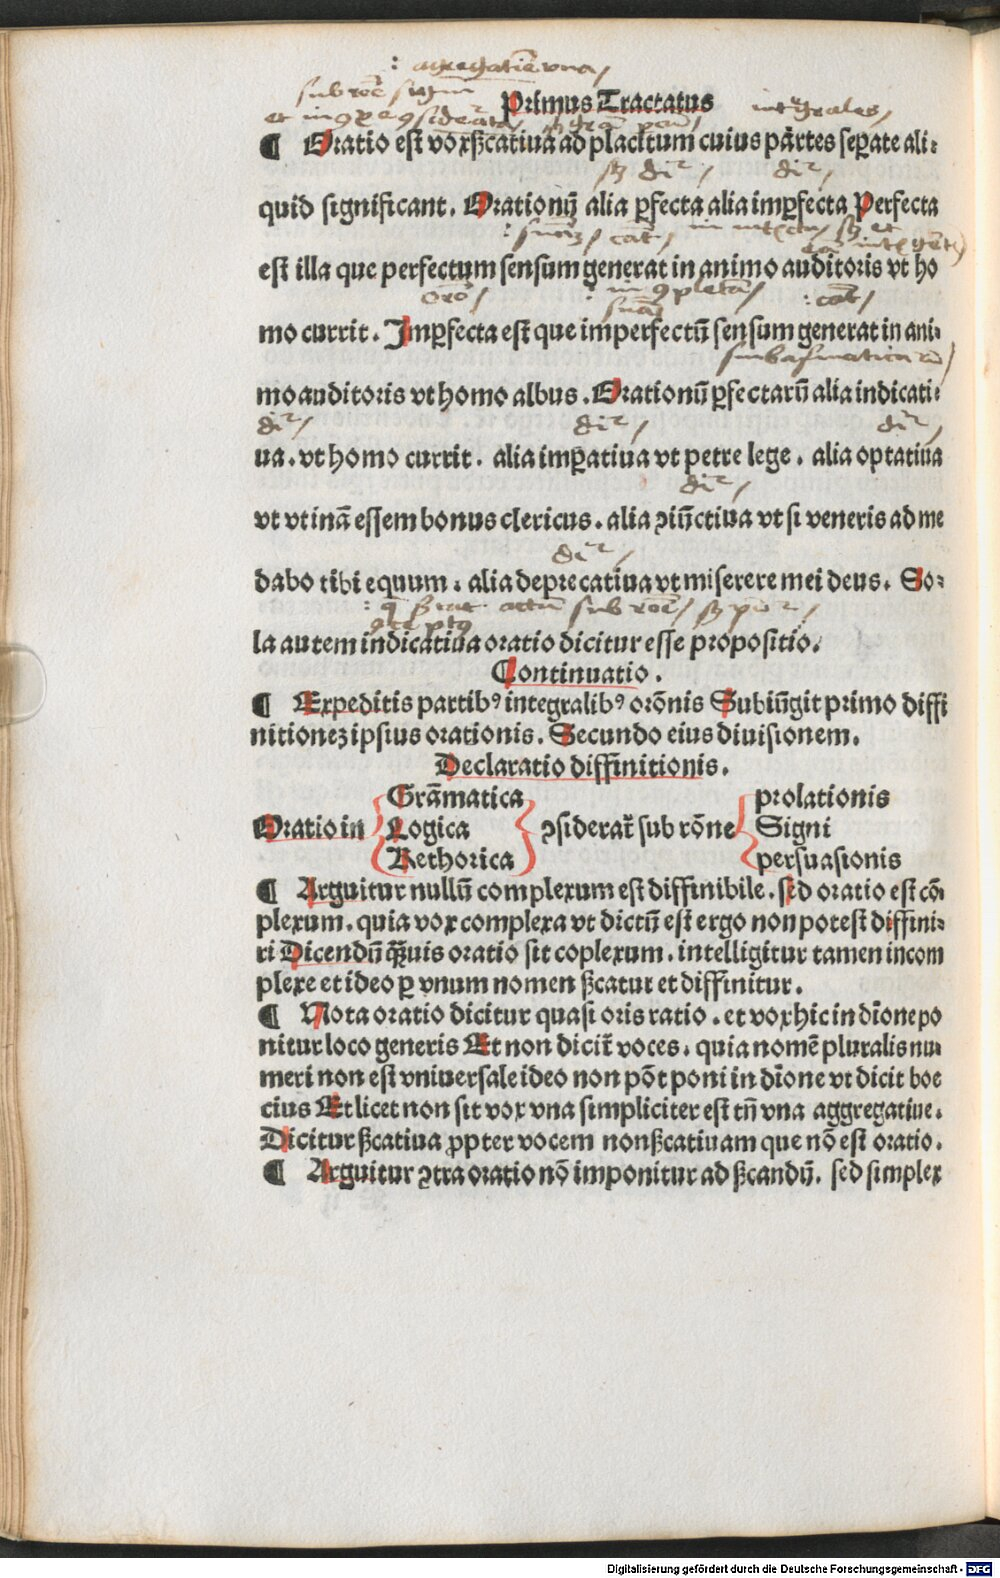 : agregatiē vna/
sub rōe signi
Primus Tractatus
integrales/
¶ Oratio est vox ꝑcatiua ad placitum cuius partes seꝑate ali⸗
dr̄/ dr̄/
quid significant. Orationū alia ꝑfecta alia imꝑfecta Perfecta
est illa que perfectum sensum generat in animo auditoris vt ho
orō/
mo currit. Imꝑfecta est que imperfectū sensum generat in ani⸗
mo auditoris vt homo albus. Orationū ꝑfectarū alia indicati⸗
dr̄/ dr̄/ dr̄/
ua. vt homo currit. alia imꝑatiua vt petre lege. alia optatiua
dr̄/
vt vtinā essem bonus clericus. alia ꝯiūctiua vt si veneris ad me
dr̄/
dabo tibi equum. alia deprecatiua vt miserere mei deus. So⸗
la autem indicatiua oratio dicitur esse propositio.
Continuatio.
¶ Expeditis partibꝰ integralibꝰ orōnis Subiūgit primo diffi
nitionez ipsius orationis. Secundo eius diuisionem.
Declaratio diffinitionis.
Grāmatica prolationis
Oratio in Logica ꝯsiderat̄ sub rōne Signi
Rethorica persuasionis
¶ Arguitur nullū complexum est diffinibile. sed oratio est cō
plexum. quia vox complexa vt dictū est ergo non potest diffini⸗
ri Dicendū qꝗ̄uis oratio sit coplexum. intelligitur tamen incom
plexe et ideo ꝑ vnum nomen ßcatur et diffinitur.
¶ Nota oratio dicitur quasi oris ratio. et vox hic in dīone po
nitur loco generis Et non dicit̄ voces. quia nomē pluralis nu⸗
meri non est vniuersale ideo non pōt poni in dīone vt dicit boe
cius Et licet non sit vox vna simpliciter est tn̄ vna aggregatiue.
Dicitur ßcatiua ꝓpter vocem nonßcatiuam que nō est oratio.
¶ Arguitur ꝯtra oratio nō imponitur ad ßcandū. sed simplex
Digitalisierung gefördert durch die Deutsche Forschungsgemeinschaft - DFG